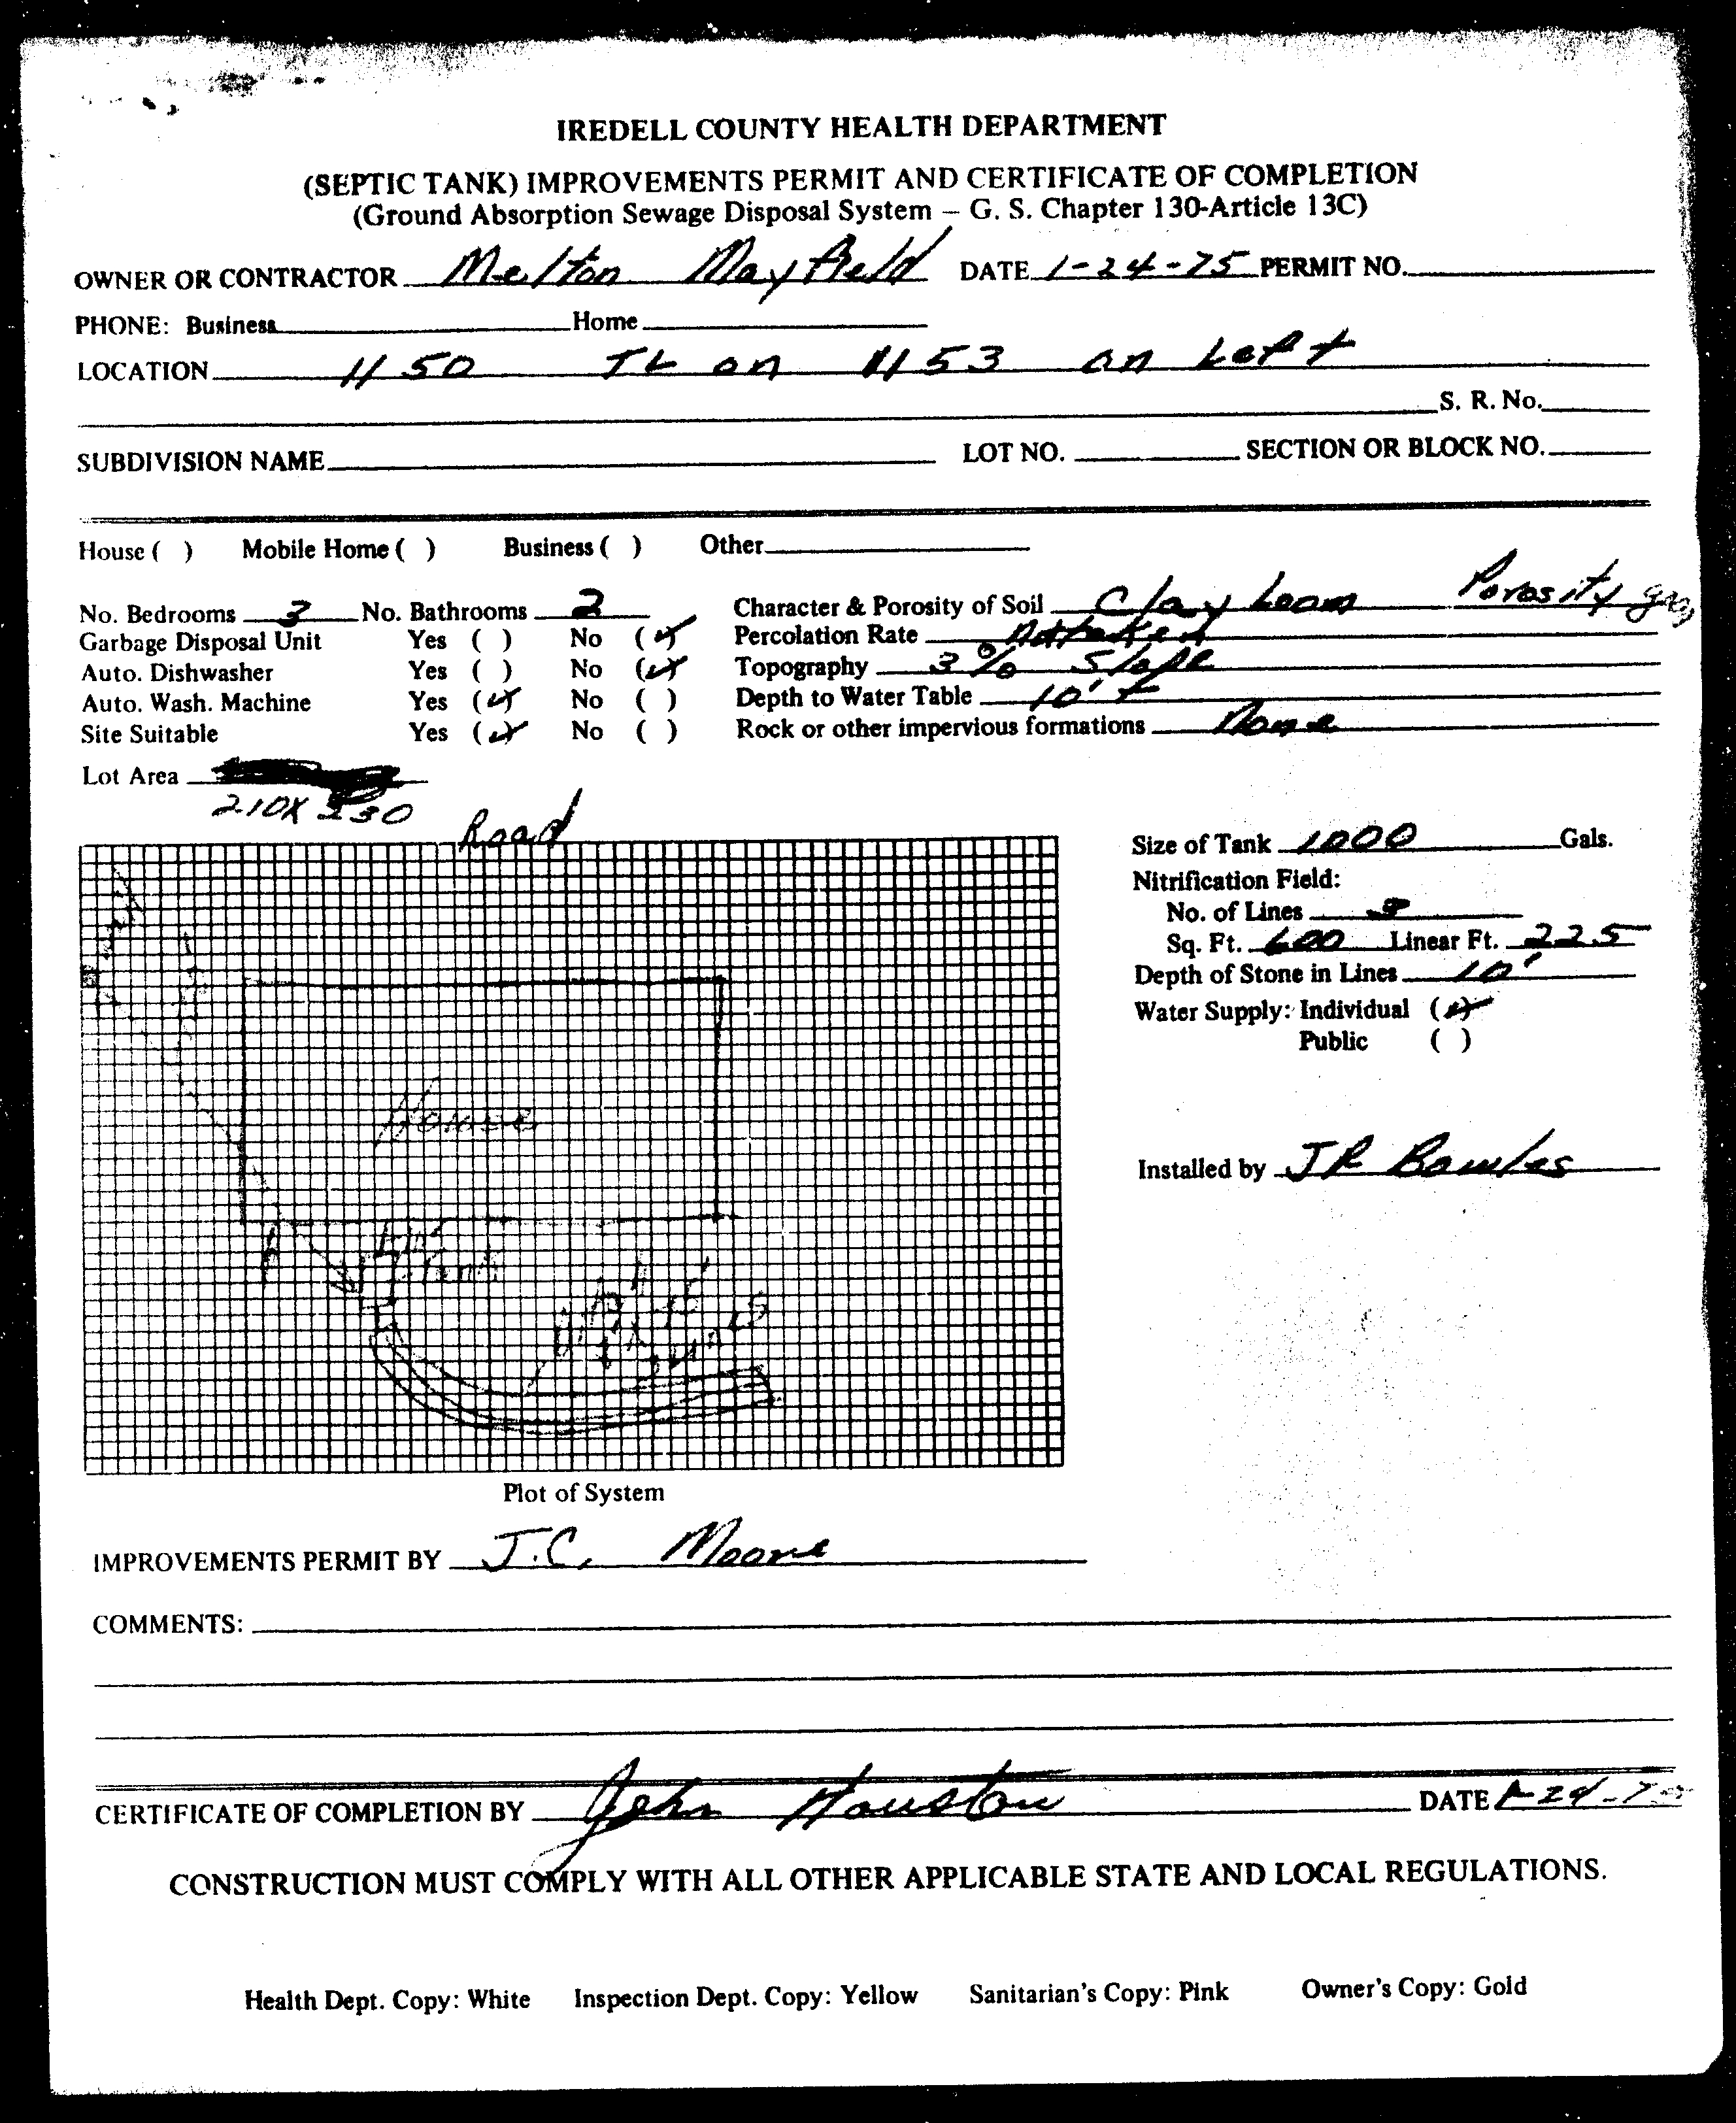 IREDELL COUNTY HEALTH DEPARTMENT
(SEPTIC TANK) IMPROVEMENTS PERMIT AND CERTIFICATE OF COMPLETION
(Ground Absorption Sewage Disposal System – G. S. Chapter 130-Article 13C)
OWNER OR CONTRACTOR Melton Mayfield DATE 1-24-75 PERMIT NO.
PHONE: Business Home
LOCATION 1150 TL on 1153 on Left
S. R. No.
SUBDIVISION NAME LOT NO. SECTION OR BLOCK NO.
House ( ) Mobile Home ( ) Business ( ) Other
No. Bedrooms 3 No. Bathrooms 2 Character & Porosity of Soil Clay Loam Porosity
Garbage Disposal Unit Yes ( ) No (✓) Percolation Rate
Auto. Dishwasher Yes ( ) No (✓) Topography 3% Slope
Auto. Wash. Machine Yes (✓) No ( ) Depth to Water Table 10'+
Site Suitable Yes (✓) No ( ) Rock or other impervious formations None
Lot Area
210X
Road
Size of Tank 1000 Gals.
Nitrification Field:
No. of Lines
Sq. Ft. 600 Linear Ft. 225
Depth of Stone in Lines 10'
Water Supply: Individual (✓)
Public ( )
House
Installed by JR Bowles
Plot of System
IMPROVEMENTS PERMIT BY J.C. Moore
COMMENTS:
CERTIFICATE OF COMPLETION BY John Houston DATE
CONSTRUCTION MUST COMPLY WITH ALL OTHER APPLICABLE STATE AND LOCAL REGULATIONS.
Health Dept. Copy: White Inspection Dept. Copy: Yellow Sanitarian's Copy: Pink Owner's Copy: Gold